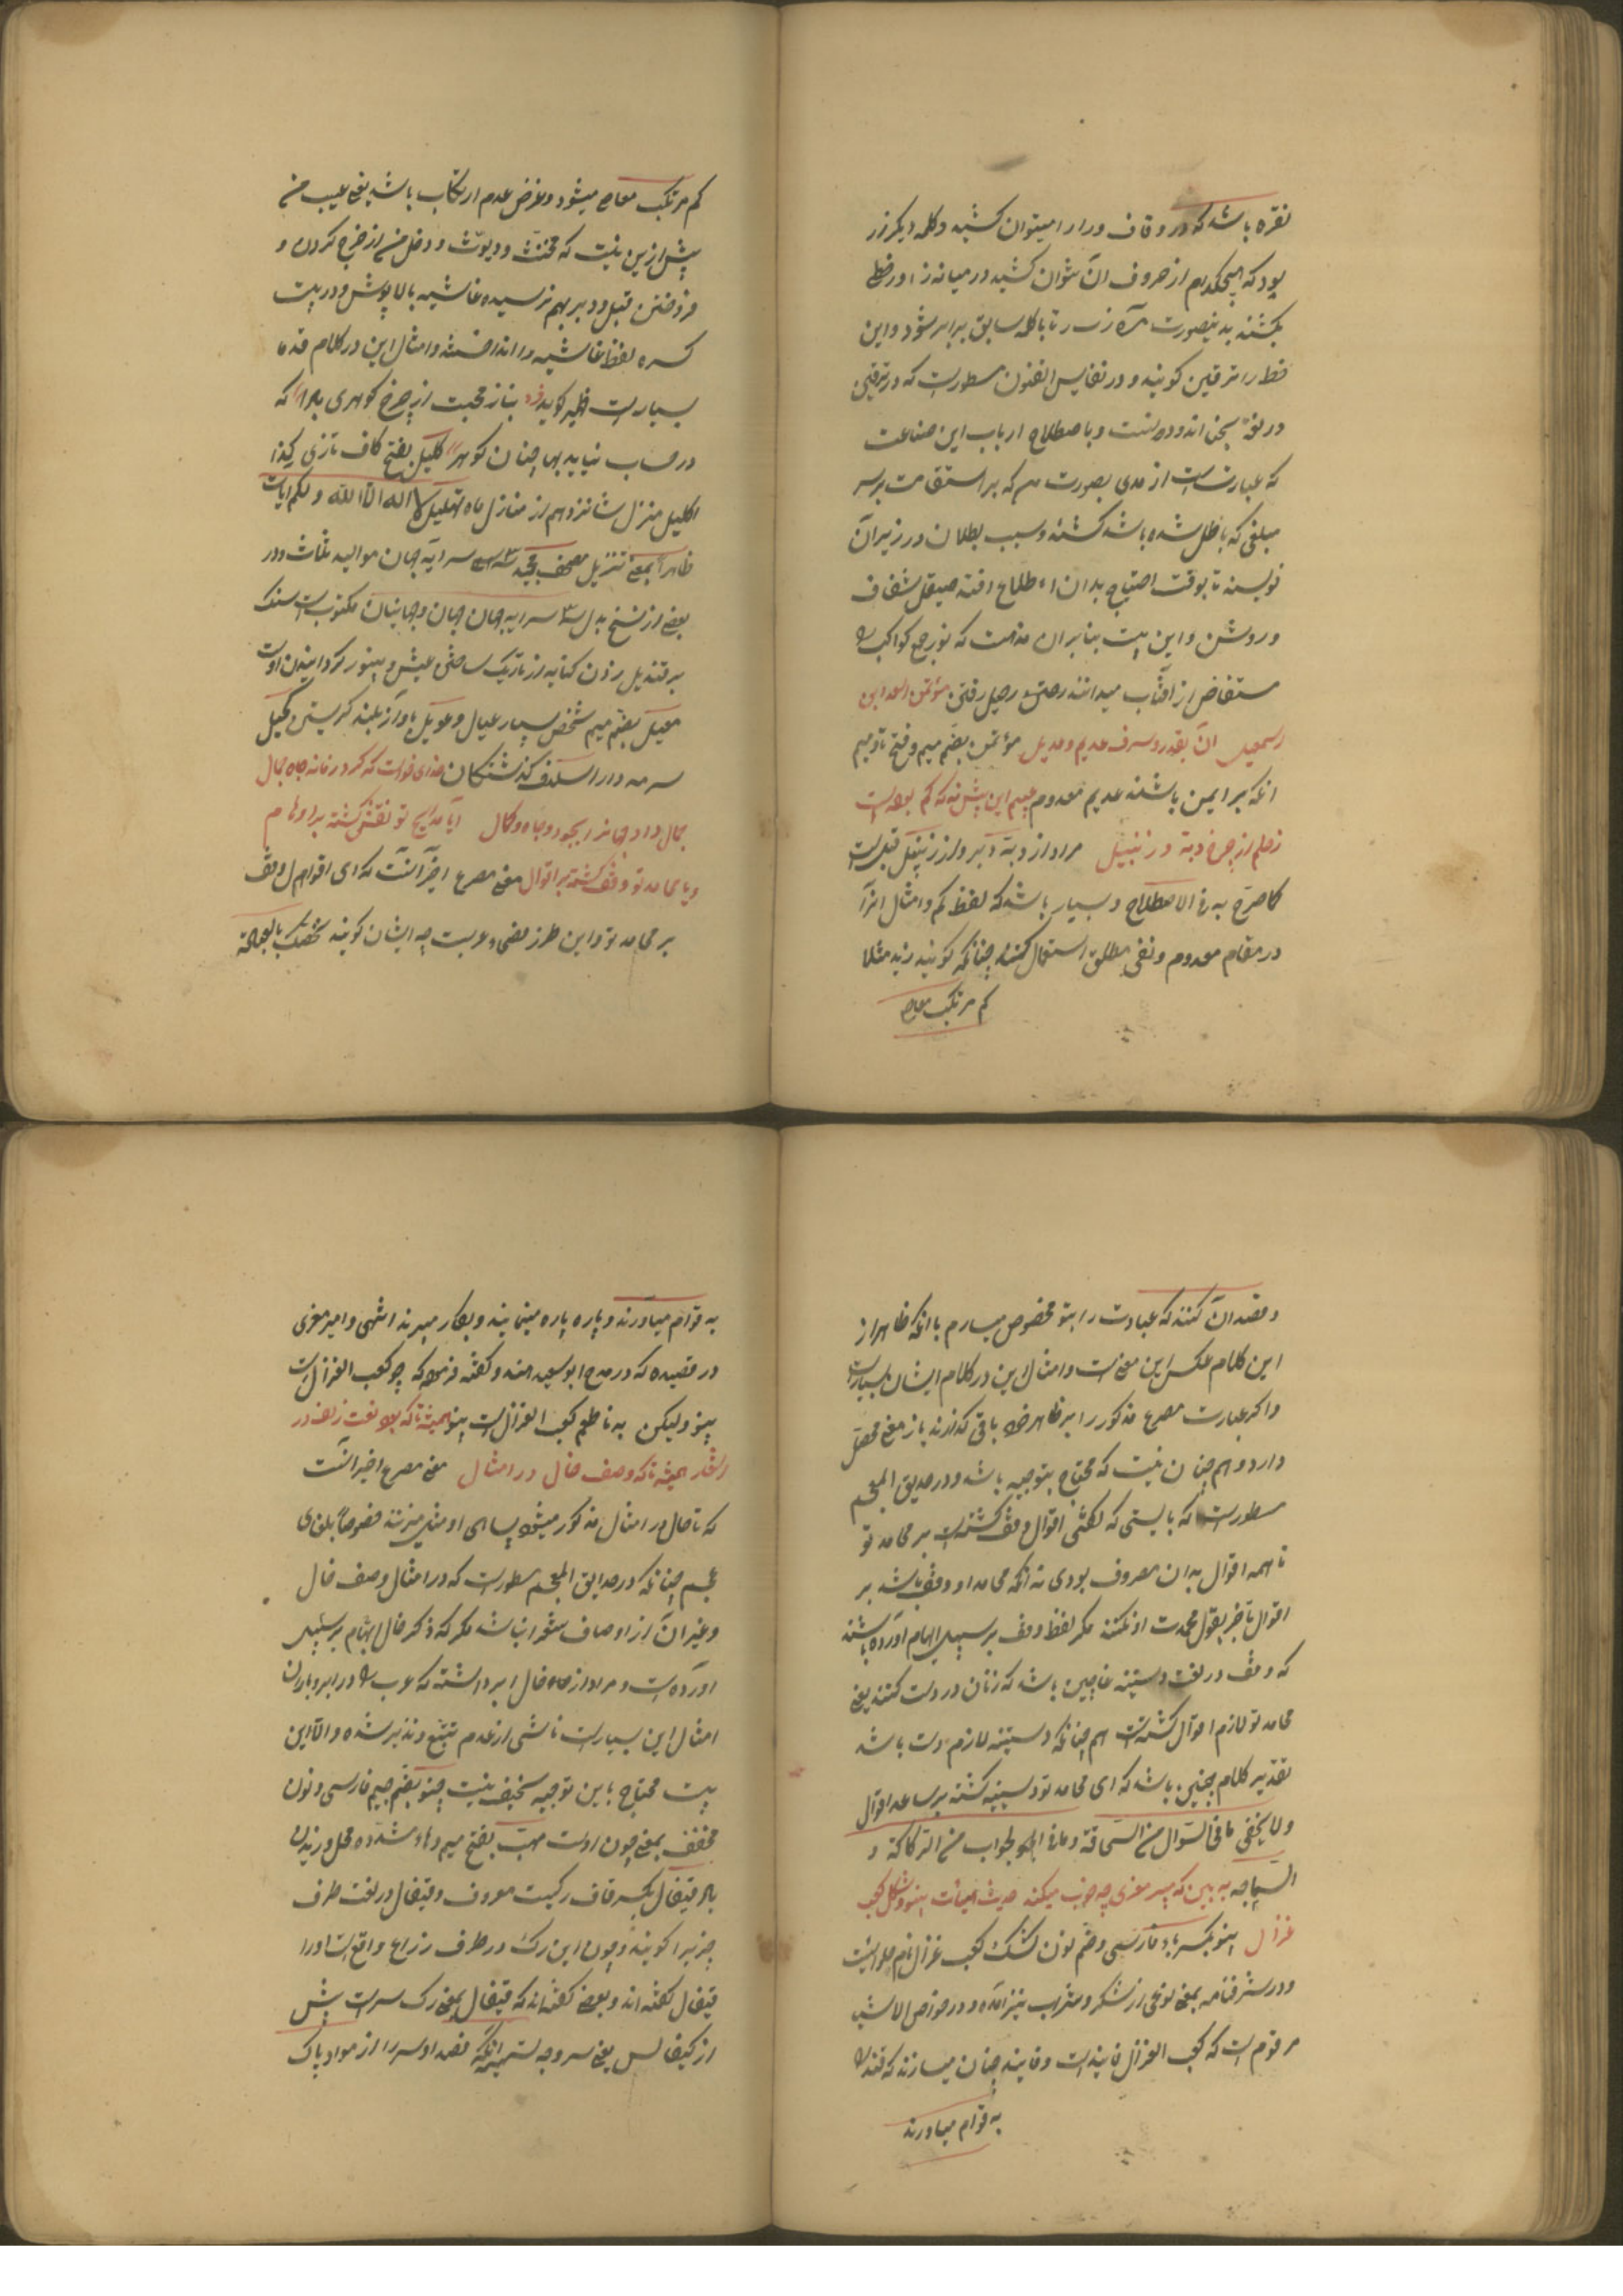 نقره باشد که در وقاف و را را میتوان کشید و کلمه دیکر زر
بود که هیچکدام از حروف آن نتوان کشید در میانه زا و را خطی
بکشند بدینصورت تا با کلمه سابق برابر شود و این
خط را ترقین کویند و در نفایس الفنون مسطورست که در ترقین
در لغة و باصطلاح ارباب این صناعت
که عبارتست از مدی بصورت که بر استقامت بر سر
مبلغی که باطل شده باشد کشند و سبب بطلان در زیر آن
نویسند تا بوقت احتیاج بدان اطلاع افتد صیقل شفاف
و روشن و این بیت بنابران مذهبست که نور جمع کواکب را
مستفاض از آفتاب میدانند رحیل رفتن مؤتمن
آن بقدر و شرف عدیم و عدیل مؤتمن بضم میم و فتح تا و میم
آنکه بر او ایمن باشند عدیم معدوم این پیش نه که کم بوده است
مراد از دبه دبر و از زنبیل قبل است
کما صرح به فی الاصطلاح و بسیار باشد که لفظ کم و امثال آنرا
در مقام معدوم و نفی مطلق استعمال کنند چنانکه کویند زید مثلا
کم مرتکب معاصی
کم مرتکب معاصی میشود و غرض عدم ارتکاب باشد یعنی عیب من
پیش ازین نیست که مخنث و دیوث و دخل من از خرج کردن و
فروختن قبل و دبر بهم نرسیده غاشیه بالاپوش و در بیت
کسره لفظ غاشیه را انداختند و امثال این در کلام قدما
بسیارست ظهیر کوید بناز محبت از چرخ کوهری که
در حساب نیاید بها چنان کوهر کلیل بفتح کاف تازی کند
اکلیل منزل شانزدهم از منازل ماه تهلیل لا اله الا الله و لکم ایات
ظاهرا بمعنی تنزیل مصحف مجید سرایه جهان موالید ثلاث و در
بعضی از نسخ بدل سرایه جهان جهان و جهانیان مکتوبست سنک
بر قندیل زدن کنایه از تاریک ساختن عیش و بینور کردانیدن اوست
معیل بضم میم شخص بسیار عیال و عویل باواز بلند کریستن کحیل
سرمه دار اسلاف کذشتکان خدای خواست که کردد زمانه جاه جمال
جمال داد جهانرا بجود و جاه و کمال ایا مدایح تو نقش کشته بر اوهام
و یا محامد تو وقف کشته بر اقوال معنی مصرع اخیر آنست که ای اقوام وقف
بر محامد تو و این طرز عربست چه ایشان کویند نخصک بالعبادة
و قصد آن کنند که عبادت را بتو مخصوص میدارم با آنکه ظاهر از
این کلام عکس این معنیست و امثال این در کلام ایشان بسیارست
و اکر عبارت مصرع مذکور را بر ظاهر خود باقی کذارند باز معنی محصل
دارد و هم چنان نیست که محتاج بتوجیه باشد و در حدایق المعجم
مسطورست که بایستی که کفتی اقوال وقف کشتست بر محامد تو
تا همه اقوال بدان مصروف بودی نه آنکه محامد او وقف باشد بر
اقوال تا جز بقول محمدت او نکنند مکر لفظ وقف بر سبیل ایهام آورده باشند
که وقف در لغت دستینه عاجین باشد که زنان در دست کنند یعنی
محامد تو لازم اقوال کشتست هم چنانکه دستینه لازم دست باشد
تقدیر کلام چنین باشد که ای محامد تو دستینه کشته بر ساعد اقوال
و لا یخفی ما فی السؤال من السخافة و ما فی الجواب من الرکاکة و
السماجه به بین که میر معزی چه خوب میکند حدیث هیأت بینو و شکل کعب
غزال بینو بکسر باء فارسی و ضم نون کشک کعب غزال نام حلوائیست
و در شرفنامه بمعنی نوعی از شکر و شراب نیز آمده و در
مرقومست که کعب الغزال فانیذست و فانیذ چنان میسازند که قند را
به قوام میاورند
به قوام میاورند و پاره پاره مینمایند و بکار میبرند انتهی و امیر معزی
در قصیده که در مدح ابو سعید هندو کفته فرموده که چو کعب الغزالست
بینو ولیکن به ناطعم کعب الغزالست بینو همیشه تا که بود نعت زلف در
اشعار همیشه تا که وصف خال در امثال معنی مصرع اخیر آنست
که تا خال در امثال مذکور میشود بسیاهی او مثل میزنند خصوصاً بلغای
عجم چنانکه در حدایق المعجم مسطورست که در امثال وصف خال
و غیر آن از اوصاف شعرا نباشد مکر که ذکر خال ابهام بر سبیل
آورده است و مراد از خال ابر داشته که عرب را در ابر و باران
امثال این بسیارست ناشی از عدم تتبع و تدبر شده و الا این
بیت محتاج باین توجیه سخیف نیست چنو بضم جیم فارسی و نون
مخفف بمعنی چون اوست مهب بفتح میم و هاء مشدده محل وزیدن
باد قیفال بکسر قاف رکیست معروف و قیفال در لغت طرف
چیزیرا کویند و چون این رک در طرف ذراع واقعست او را
قیفال کفته اند و بعضی کفته اند که قیفال بمعنی رک سرست پش
از کیفالس یعنی سر وجه تسمیه آنکه فصد او سر را از مواد پاک